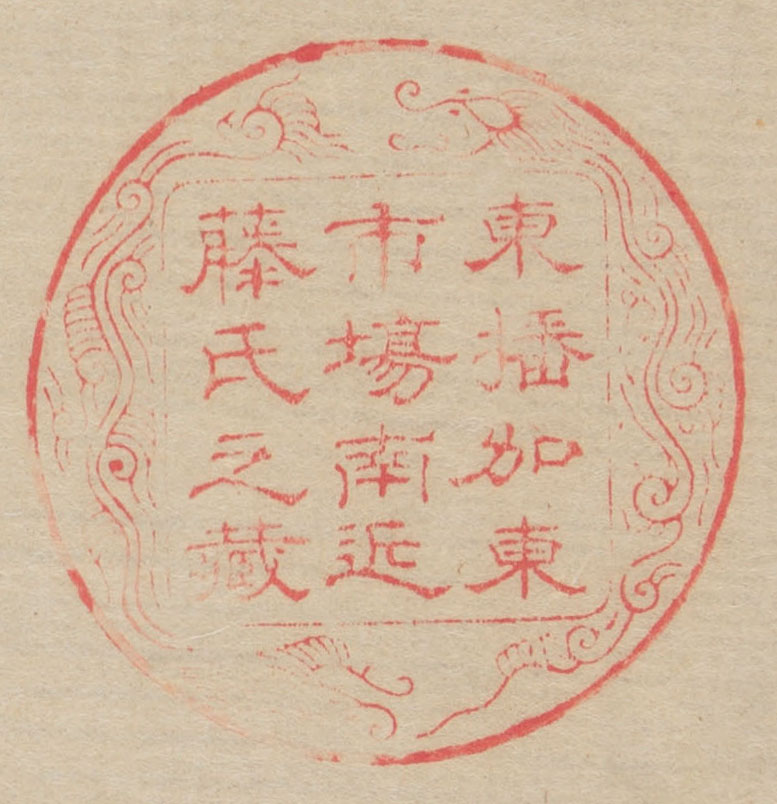 東播加東
市場南近
藤氏之藏